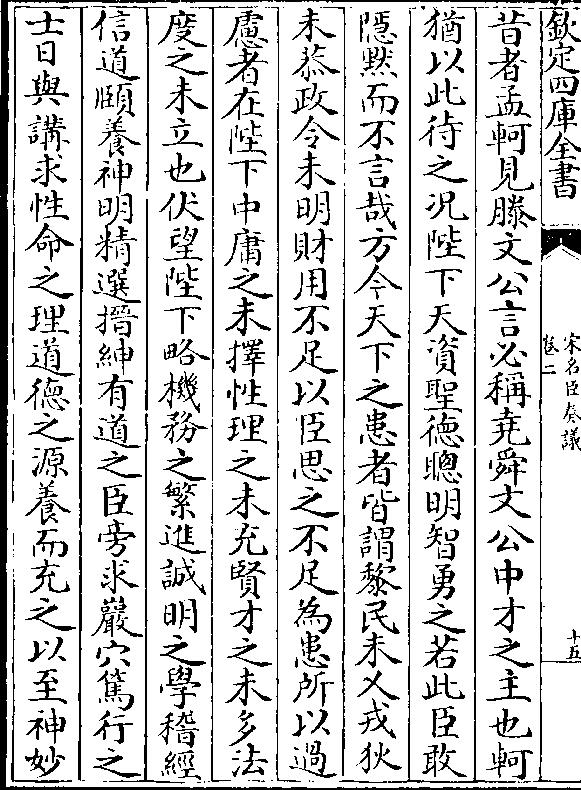 欽定四庫全書
宋名臣奏議
卷二
十五
昔者孟軻見滕文公言必稱堯舜文公中才之主也軻
猶以此待之况陛下天資聖德聰明智勇之若此臣敢
隠黙而不言哉方今天下之患者皆謂黎民未乂戎狄
未恭政令未明財用不足以臣思之不足為患所以過
慮者在陛下中庸之未擇性理之未充賢才之未多法
度之未立也伏望陛下略機務之繁進誠明之學稽經
信道頤養神明精選搢紳有道之臣旁求巖穴篤行之
士日與講求性命之理道德之源養而充之以至神妙